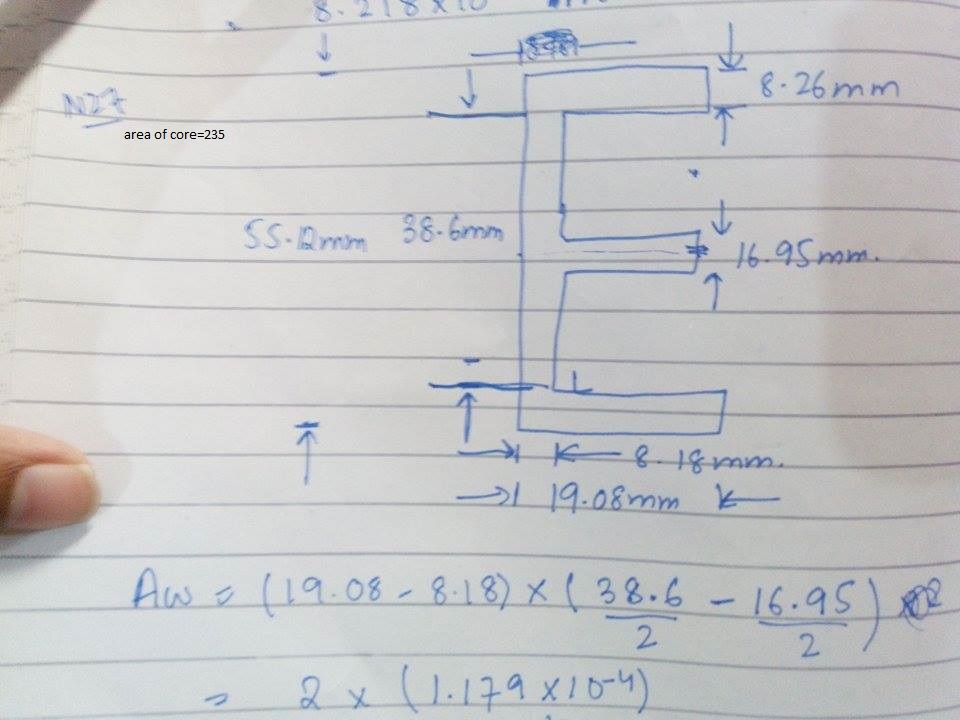 8.218x10
N27
area of core=235
8.26mm
55.12mm 38.6mm
16.95mm.
8.18mm.
19.08mm
Aw = (19.08 - 8.18) x ( 38.6/2 - 16.95/2 )
= 2 x (1.179 x 10-4)